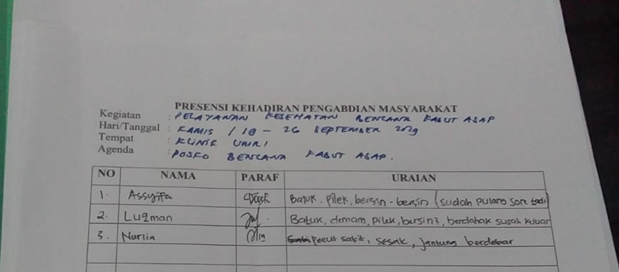 PRESENSI KEHADIRAN PENGABDIAN MASYARAKAT
Kegiatan : PELAYANAN KESEHATAN BENCANA KABUT ASAP
Hari/Tanggal : KAMIS / 18 - 26 SEPTEMBER 2019
Tempat : KLINIK UNRI
Agenda : POSKO BENCANA KABUT ASAP.
NO NAMA PARAF URAIAN
1. Assyifa Batuk, Pilek, bersin-bersin (sudah pulang sore tadi)
2. Luqman Batuk, demam, pilek, bersin2, berdahak susah keluar
3. Nurlia Perut sakit, sesak, jantung berdebar